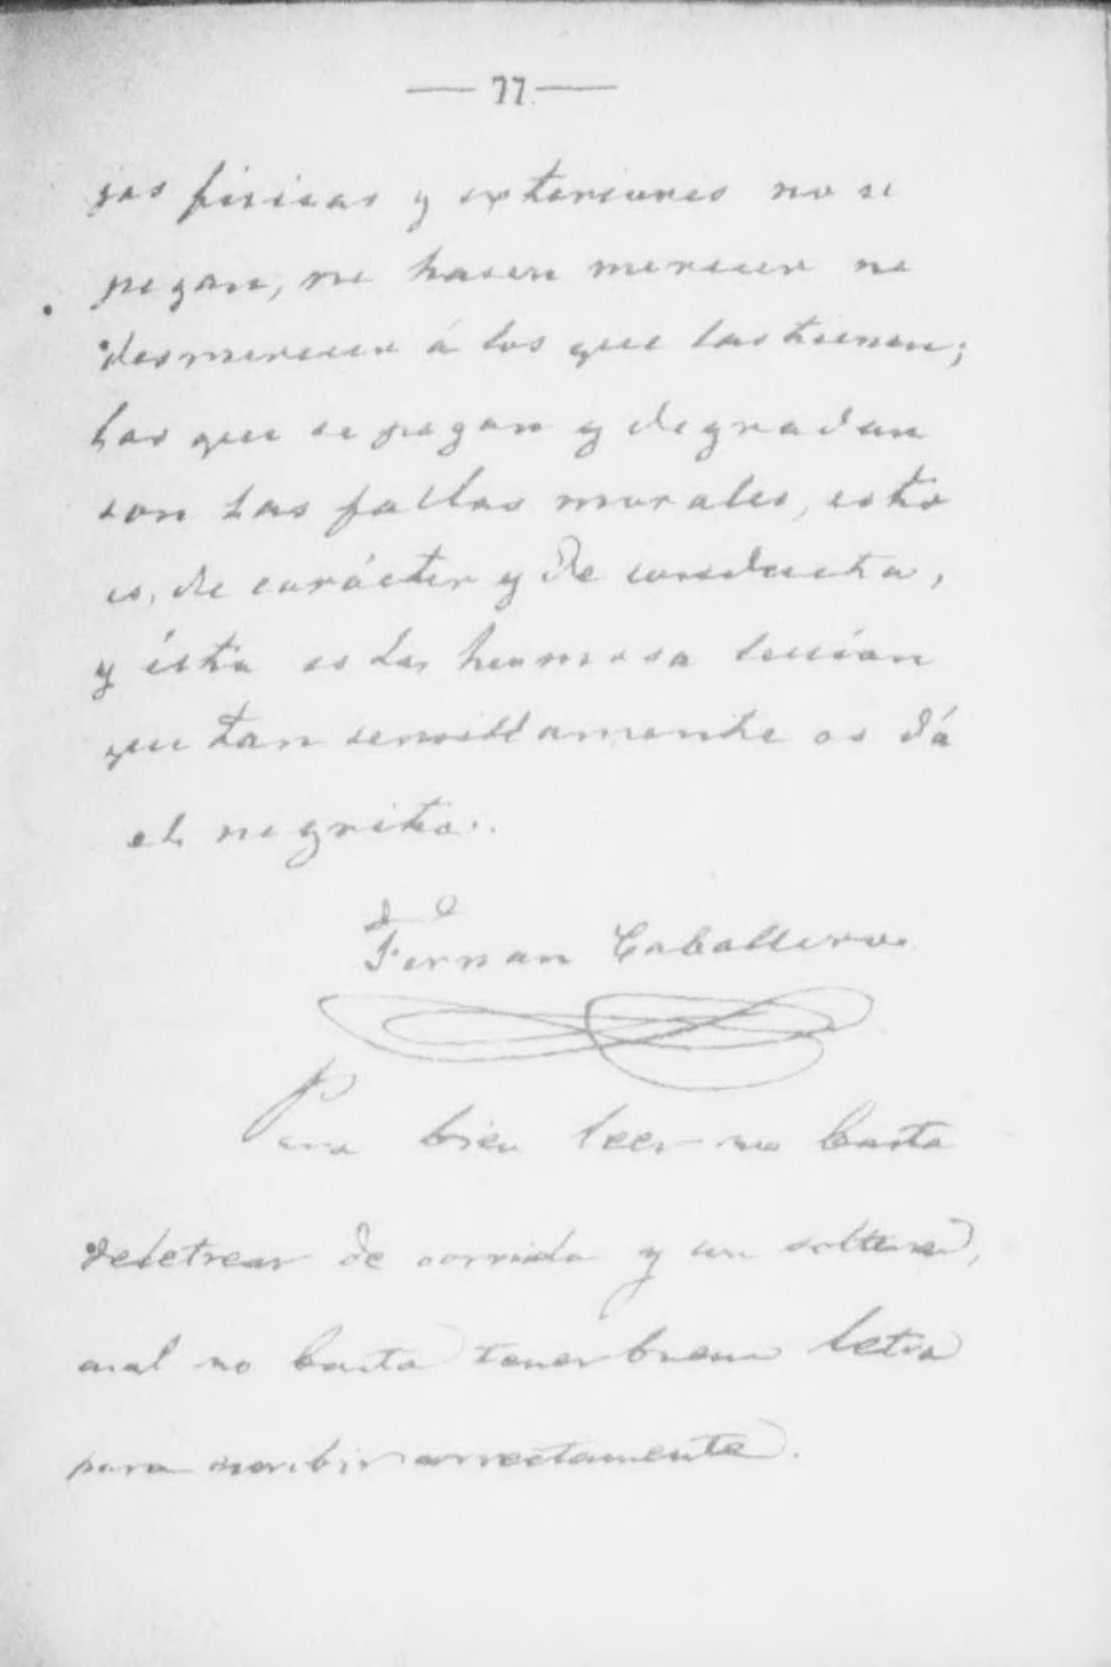 — 77. —
jas físicas y exteriores no se
pegan, ni hacen merecer ni
desmerecer á los que las tienen;
las que se pegan y degradan
son las faltas morales, esto
es, de carácter y de conducta,
y ésta es la hermosa leccion
que tan sencillamente os dá
el negrito.
Fernan Caballero
Para bien leer no basta
deletrear de corrido y con soltura,
cual no basta tener buena letra
para escribir correctamente.